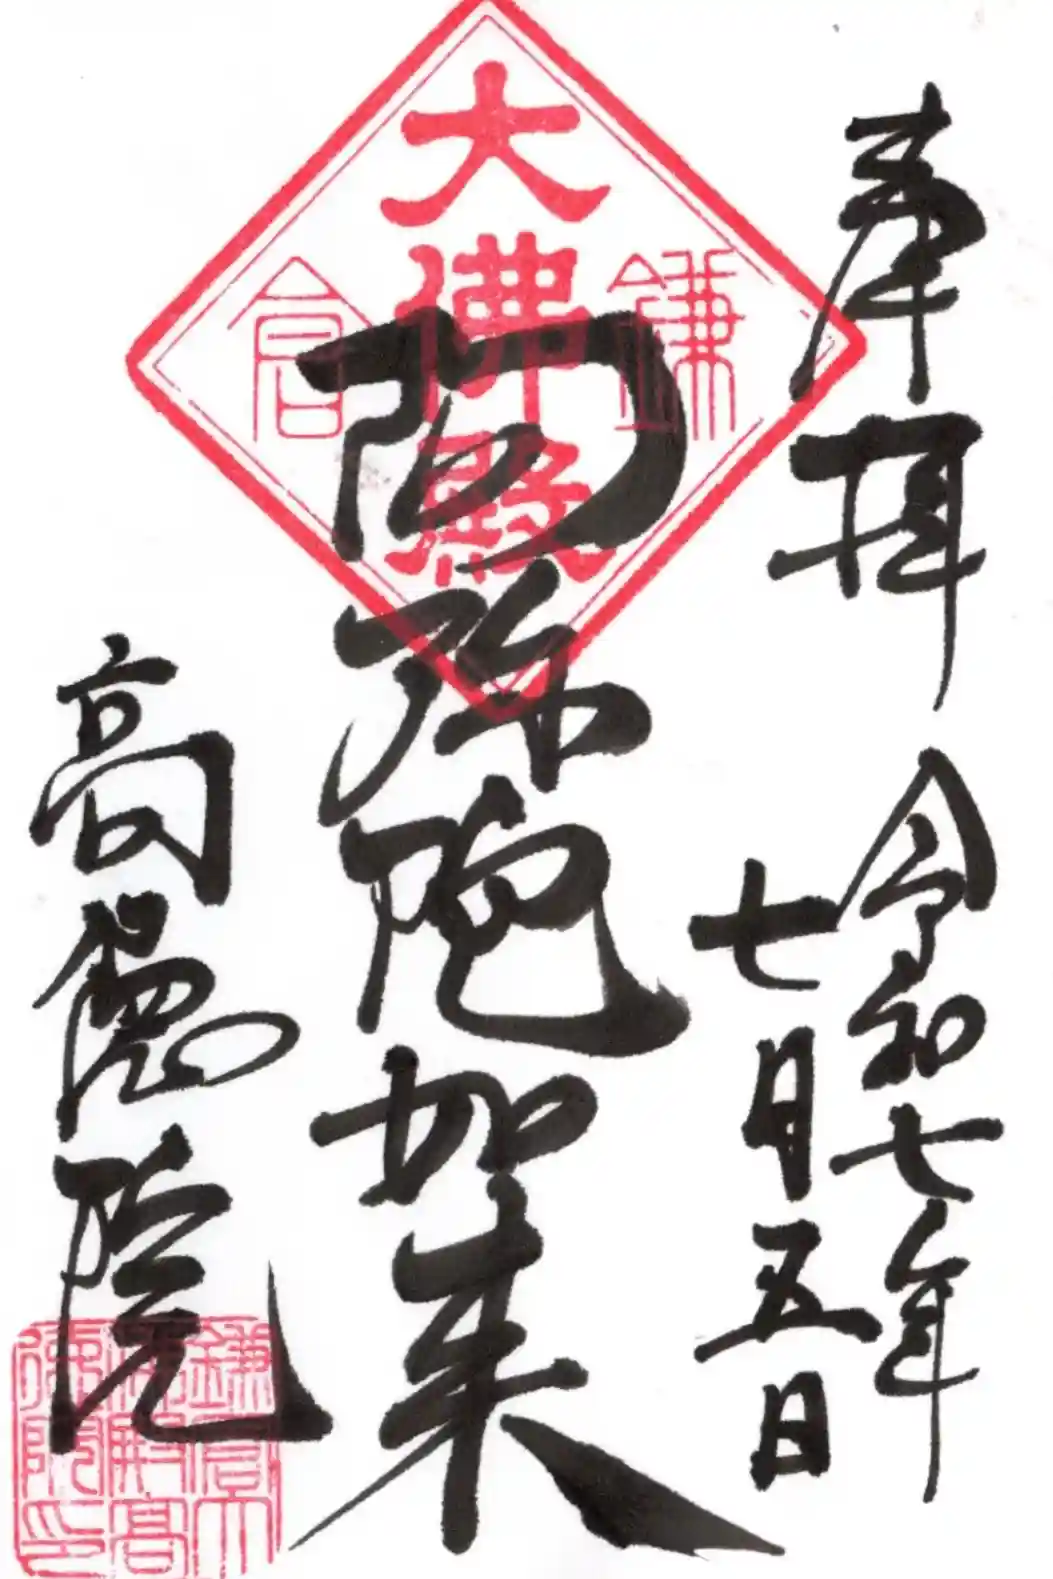 奉拝
令和七年
七月五日
鎌倉
大佛殿
阿弥陀如来
高徳院
鎌倉大
佛殿高
徳院印